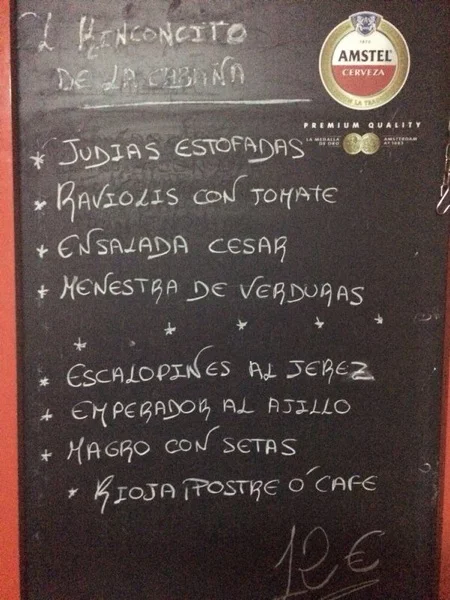 L RINCONCITO
DE LA CABAÑA
1870
AMSTEL
CERVEZA
PREMIUM QUALITY
LA MEDALLA DE ORO AMSTERDAM AT 1883
* JUDIAS ESTOFADAS
* RAVIOLIS CON TOMATE
* ENSALADA CESAR
* MENESTRA DE VERDURAS
* * * * *
* ESCALOPINES AL JEREZ
* EMPERADOR AL AJILLO
* MAGRO CON SETAS
* RIOJA, POSTRE Ó CAFE
12€